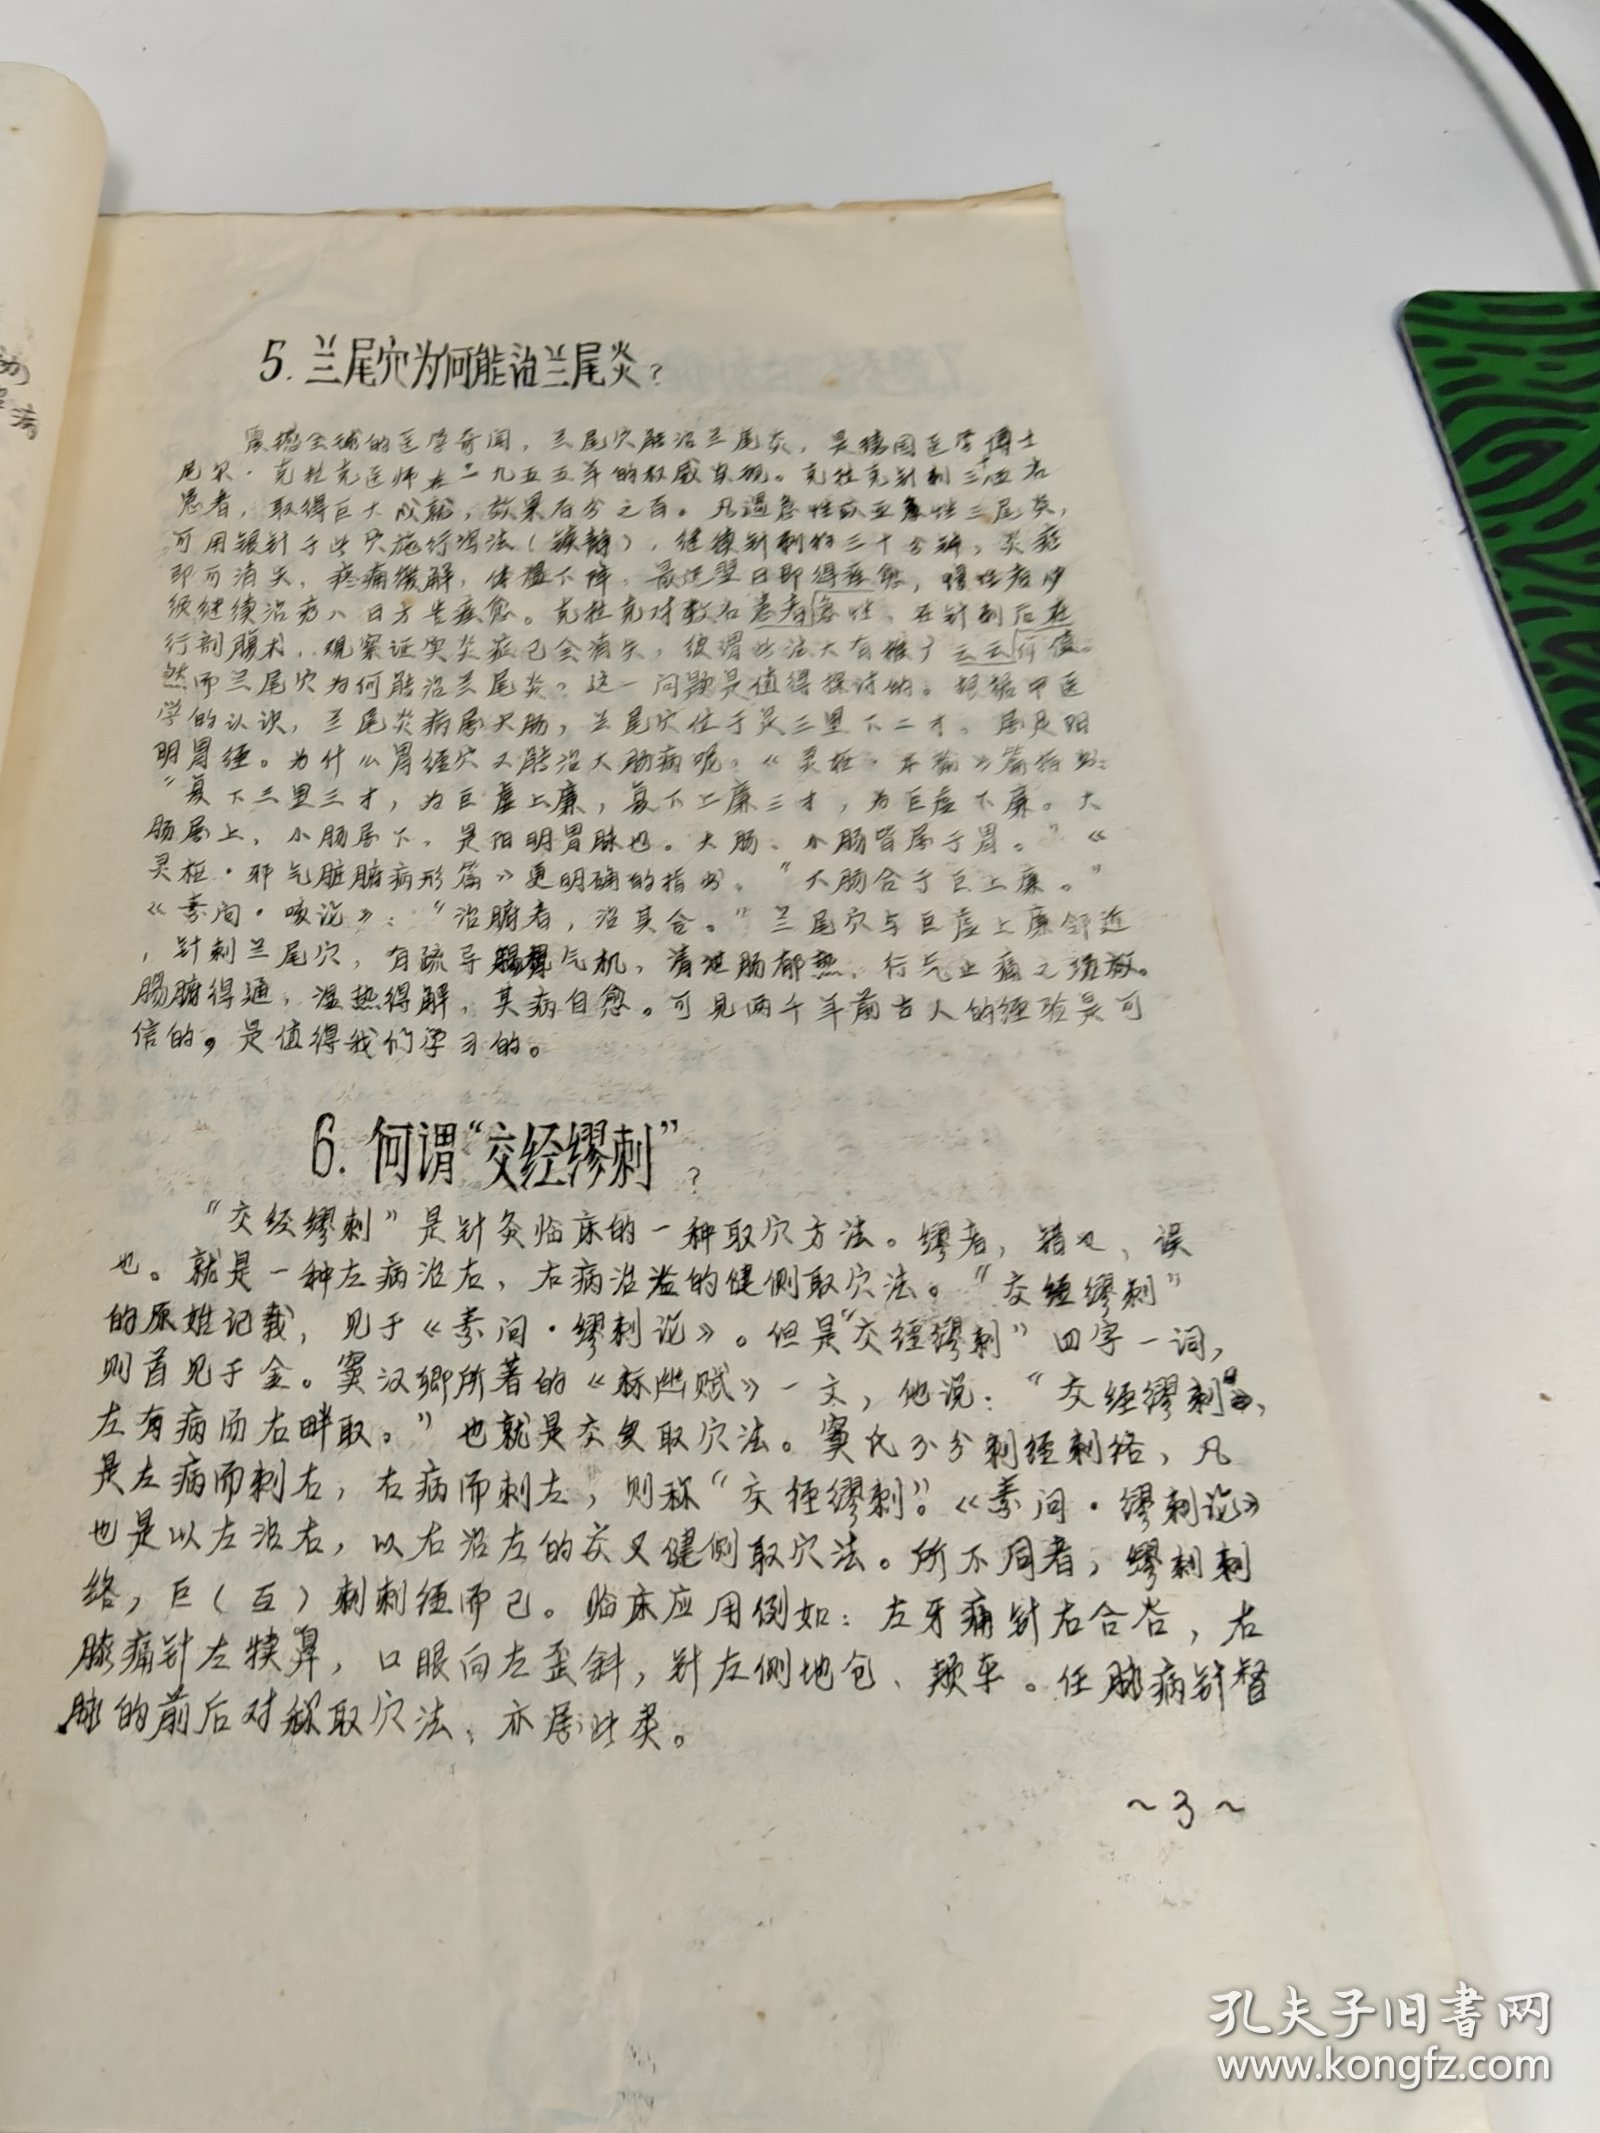 5. 兰尾穴为何能治兰尾炎?
震撼全球的医学奇闻,兰尾穴能治兰尾炎,是德国医学博士
尾尔·克拉克医师在一九五五年的权威发现。克拉克针刺三十五名
患者,取得巨大成就,效果百分之百。凡遇急性或亚急性兰尾炎,
可用银针于此穴施行泻法(镇静),继续针刺约三十分钟,炎症
即可消失,疼痛缓解,体温下降,最迟翌日即得痊愈,慢性者
继续治疗八日方告痊愈。克拉克对数名患者急性,在针刺后
行剖腹术,观察证实炎症已全消失,彼谓此法大有
然而兰尾穴为何能治兰尾炎?这一问题是值得探讨的。根据中医
学的认识,兰尾炎病属大肠,兰尾穴位于足三里下二寸,属足阳
明胃经。为什么胃经穴又能治大肠病呢?《灵枢·本输》篇指出:
“复下三里三寸,为巨虚上廉,复下上廉三寸,为巨虚下廉。大
肠属上,小肠属下,足阳明胃脉也。大肠、小肠皆属于胃。”《
灵枢·邪气脏腑病形篇》更明确的指出。“大肠合于巨上廉。”
《素问·咳论》:“治腑者,治其合。”兰尾穴与巨虚上廉邻近
,针刺兰尾穴,有疏导肠胃气机,清泄肠郁热,行气止痛之绩效。
肠腑得通,湿热得解,其病自愈。可见两千年前古人的经验是可
信的,是值得我们学习的。
6. 何谓“交经缪刺”?
“交经缪刺”是针灸临床的一种取穴方法。缪者,错也、误
也。就是一种左病治右,右病治左的健侧取穴法。“交经缪刺”
的原始记载,见于《素问·缪刺论》。但是“交经缪刺”四字一词,
则首见于金。窦汉卿所著的《标幽赋》一文,他说:“交经缪刺,
左有病而右畔取。”也就是交叉取穴法。窦氏不分刺经刺络,凡
是左病而刺右,右病而刺左,则称“交经缪刺”。《素问·缪刺论》
也是以左治右,以右治左的交叉健侧取穴法。所不同者,缪刺刺
络,巨(互)刺刺经而已。临床应用例如:左牙痛针右合谷,右
膝痛针左犊鼻,口眼向左歪斜,针左侧地仓、颊车。任脉病针督
脉的前后对称取穴法,亦属此类。
~3~
孔夫子旧书网
www.kongfz.com